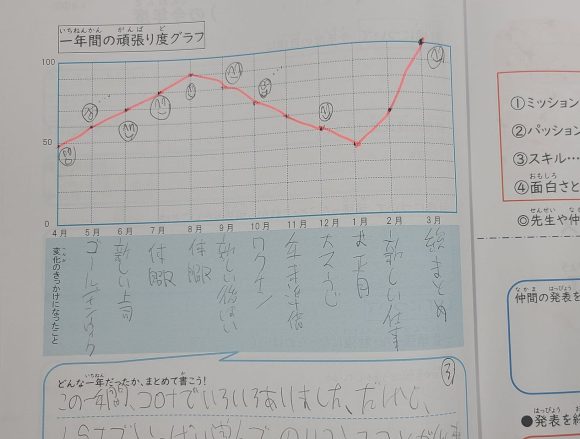 いちねんかん がんば ど
一年間の頑張り度グラフ
100
50
0
4月 5月 6月 7月 8月 9月 10月 11月 12月 1月 2月 3月
変化のきっかけになったこと
ゴールデンウィーク
新しい上司
体
体
新しい後はい
ワクチン
年末準備
大そうじ
お正月
新しい仕事
総まとめ
いちねん か
どんな一年だったか、まとめて書こう!
③
この一年間、コロナでいろいろありました。だけど、
①ミッション
②パッション
③スキル…
おもしろ
④面白さと
せんせい なか
◎先生や仲
なかま はっぴょう
仲間の発表を
はっぴょう
●発表を